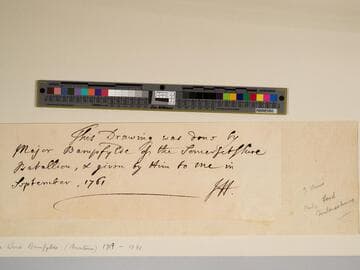 This Drawing was done by
Major Bampfylde of the Somersetshire
Batallion, & given by Him to me in
September, 1761
JH.
Bampfylde 1719 -